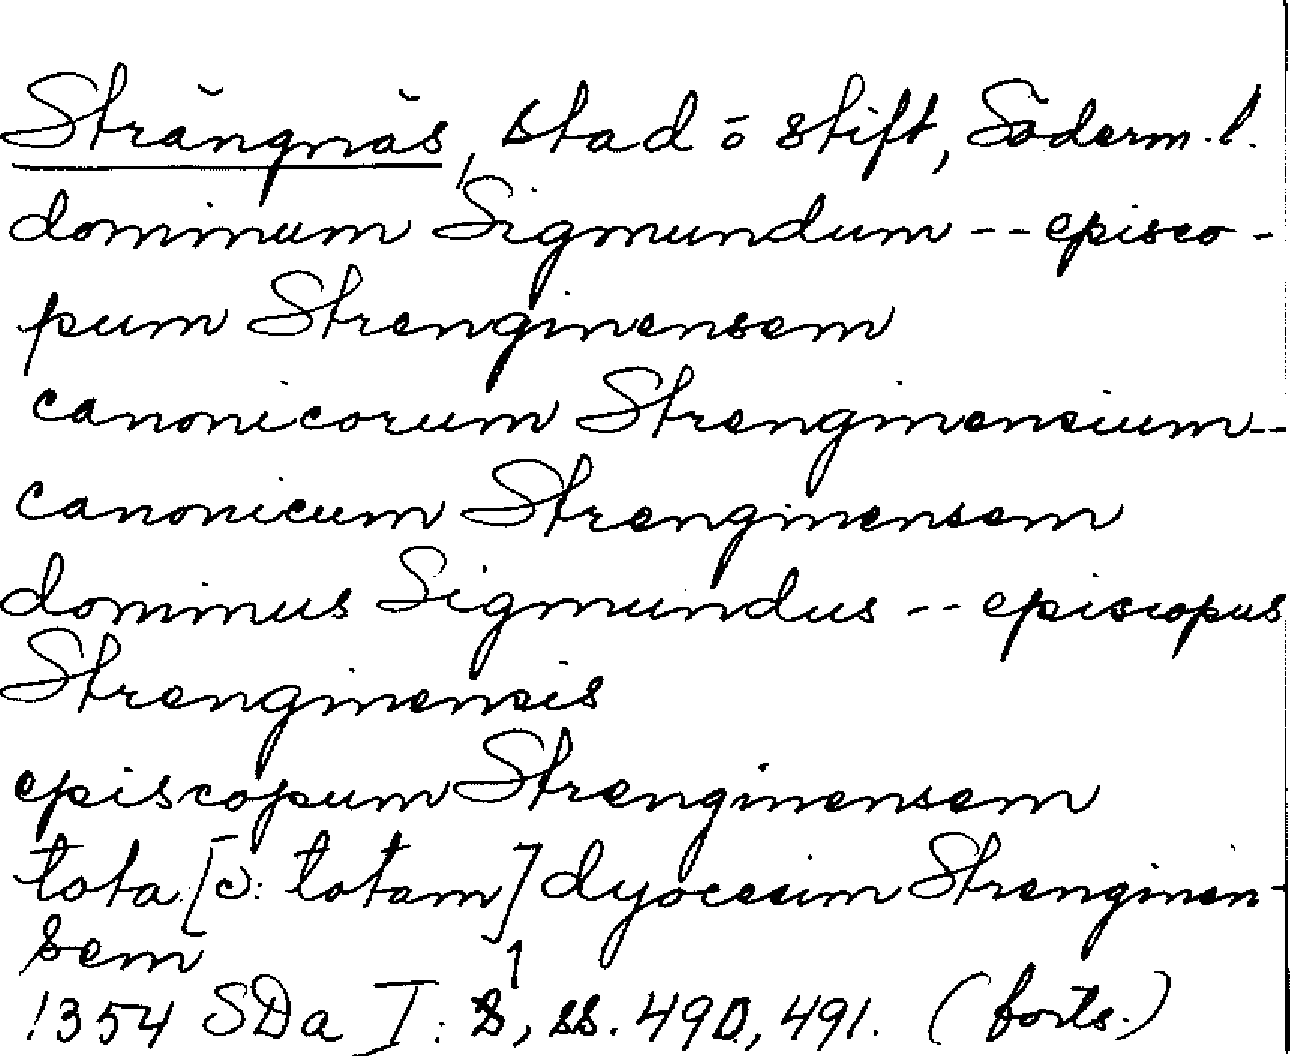 Strängnäs, stad ō stift, Söderm. l.
dominum Sigmundum -- episco-
pum Strenginensem
canonicorum Strenginensium --
canonicum Strenginensem
dominus Sigmundus -- episcopus
Strenginensis
episcopum Strenginensem
tota [ɔ: totam] dyocesim Strenginen-
sem
1354 SDa I: 1, ss. 490, 491. (forts.)